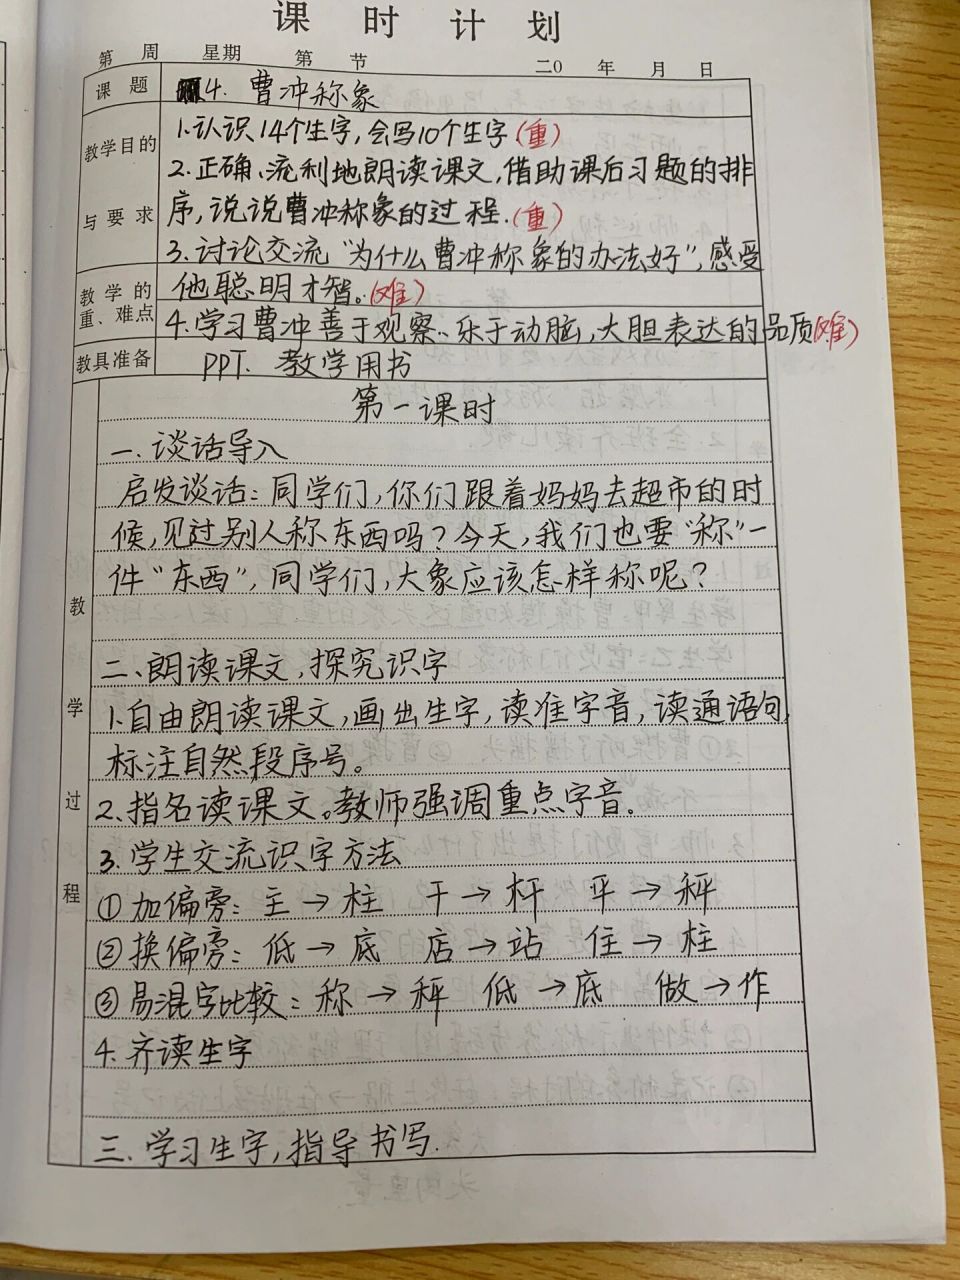 课时计划
第 周 星期 第 节 二0 年 月 日
课题 4. 曹冲称象
教学目的与要求
1.认识14个生字,会写10个生字(重)
2.正确、流利地朗读课文,借助课后习题的排
序,说说曹冲称象的过程.(重)
3.讨论交流“为什么曹冲称象的办法好”,感受
教学的重、难点
他聪明才智。(难)
4.学习曹冲善于观察、乐于动脑,大胆表达的品质(难)
教具准备 PPT. 教学用书
教学过程
第一课时
一.谈话导入
启发谈话:同学们,你们跟着妈妈去超市的时
候,见过别人称东西吗?今天,我们也要“称”一
件“东西”,同学们,大象应该怎样称呢?
二、朗读课文,探究识字
1.自由朗读课文,画出生字,读准字音,读通语句,
标注自然段序号。
2.指名读课文。教师强调重点字音。
3.学生交流识字方法
①加偏旁:主→柱 干→杆 平→秤
②换偏旁:低→底 店→站 住→柱
③易混字比较:称→秤 低→底 做→作
4.齐读生字
三.学习生字,指导书写.